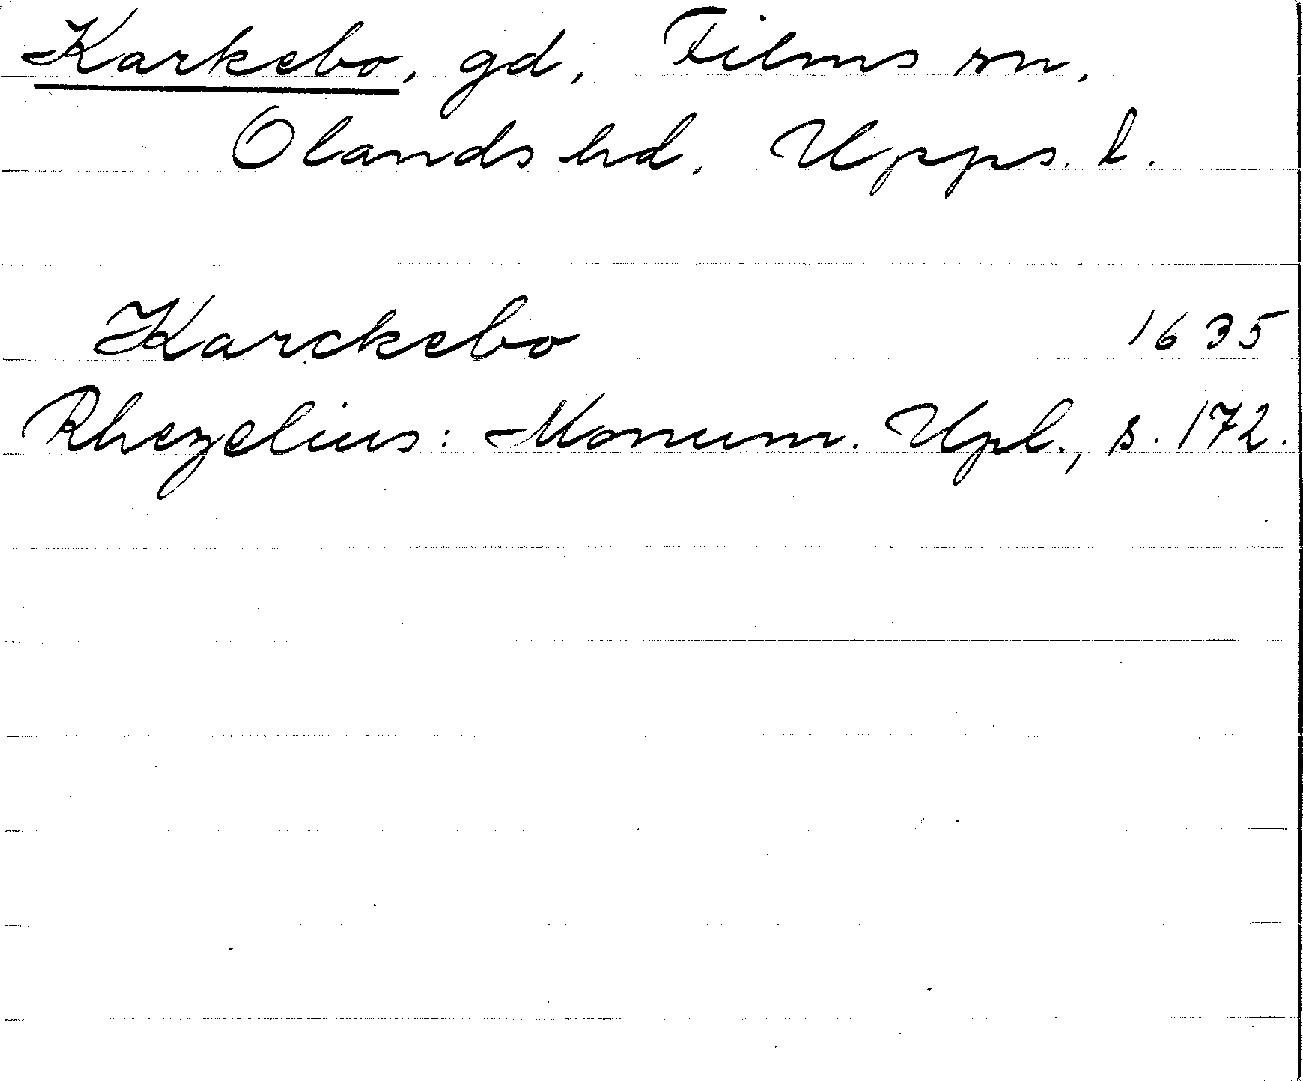 Karkebo, gd, Films sn,
Olands hd. Upps. l.
Karckebo 1635
Rhezelius: Monum. Upl., s. 172.